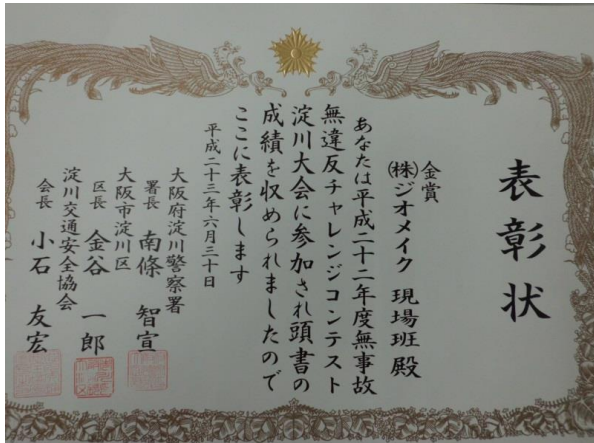 表彰状
金賞
(株)ジオメイク 現場班 殿
あなたは平成二十二年度無事故
無違反チャレンジコンテスト
淀川大会に参加され頭書の
成績を収められましたので
ここに表彰します
平成二十三年六月三十日
大阪府淀川警察署
署長 南條 智宣
大阪市淀川区
区長 金谷 一郎
淀川交通安全協会
会長 小石 友宏